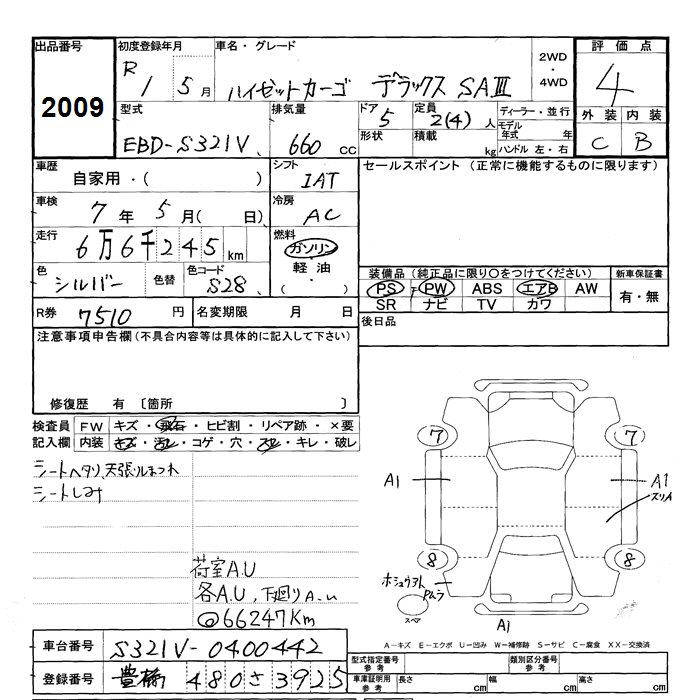 出品番号 初度登録年月 車名・グレード 2WD・4WD 評価点
2009 R 1 5月 ハイゼットカーゴ デラックス SAⅢ 4
型式 排気量 ドア 定員 ディーラー・並行 外装 内装
EBD-S321V 660cc 5 2(4)人 モデル年式 年 C B
形状 積載 kg ハンドル 左・右
車歴 シフト セールスポイント (正常に機能するものに限ります)
自家用・( ) IAT
車検 冷房
7年 5月( 日) AC
走行 燃料
6万6千245km ガソリン
色 色コード 軽油 装備品 (純正品に限り○をつけてください) 新車保証書
シルバー 色替 S28 ( ・ ) PS PW ABS エアB AW 有・無
SR ナビ TV カワ
R券 7510円 名変期限 月 日 後日品
注意事項申告欄(不具合内容等は具体的に記入して下さい)
修復歴 有 〔箇所 〕
検査員 FW キズ・飛石・ヒビ割・リペア跡・×要
記入欄 内装 キズ・汚レ・コゲ・穴・スレ・キレ・破レ
シートヘタリ、天張りしまつわ
シートしみ
7 7
A1 A1
スリA
8 8
荷室A.U
各A.U、下廻りA.u
@66247Km
スペア A1
A-キズ E-エクボ U-凹み W-補修跡 S-サビ C-腐食 XX-交換済
車台番号 S321V-0400442 型式指定番号 参考 類別区分番号 参考
登録番号 豊橋 480さ3925 車庫証明用 参考 長さ cm 幅 cm 高さ cm